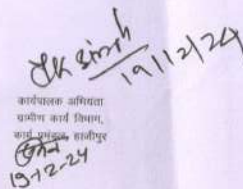 JK Singh
19/12/24
कार्यपालक अभियंता
ग्रामीण कार्य विभाग,
कार्य प्रमंडल, हाजीपुर
19-12-24